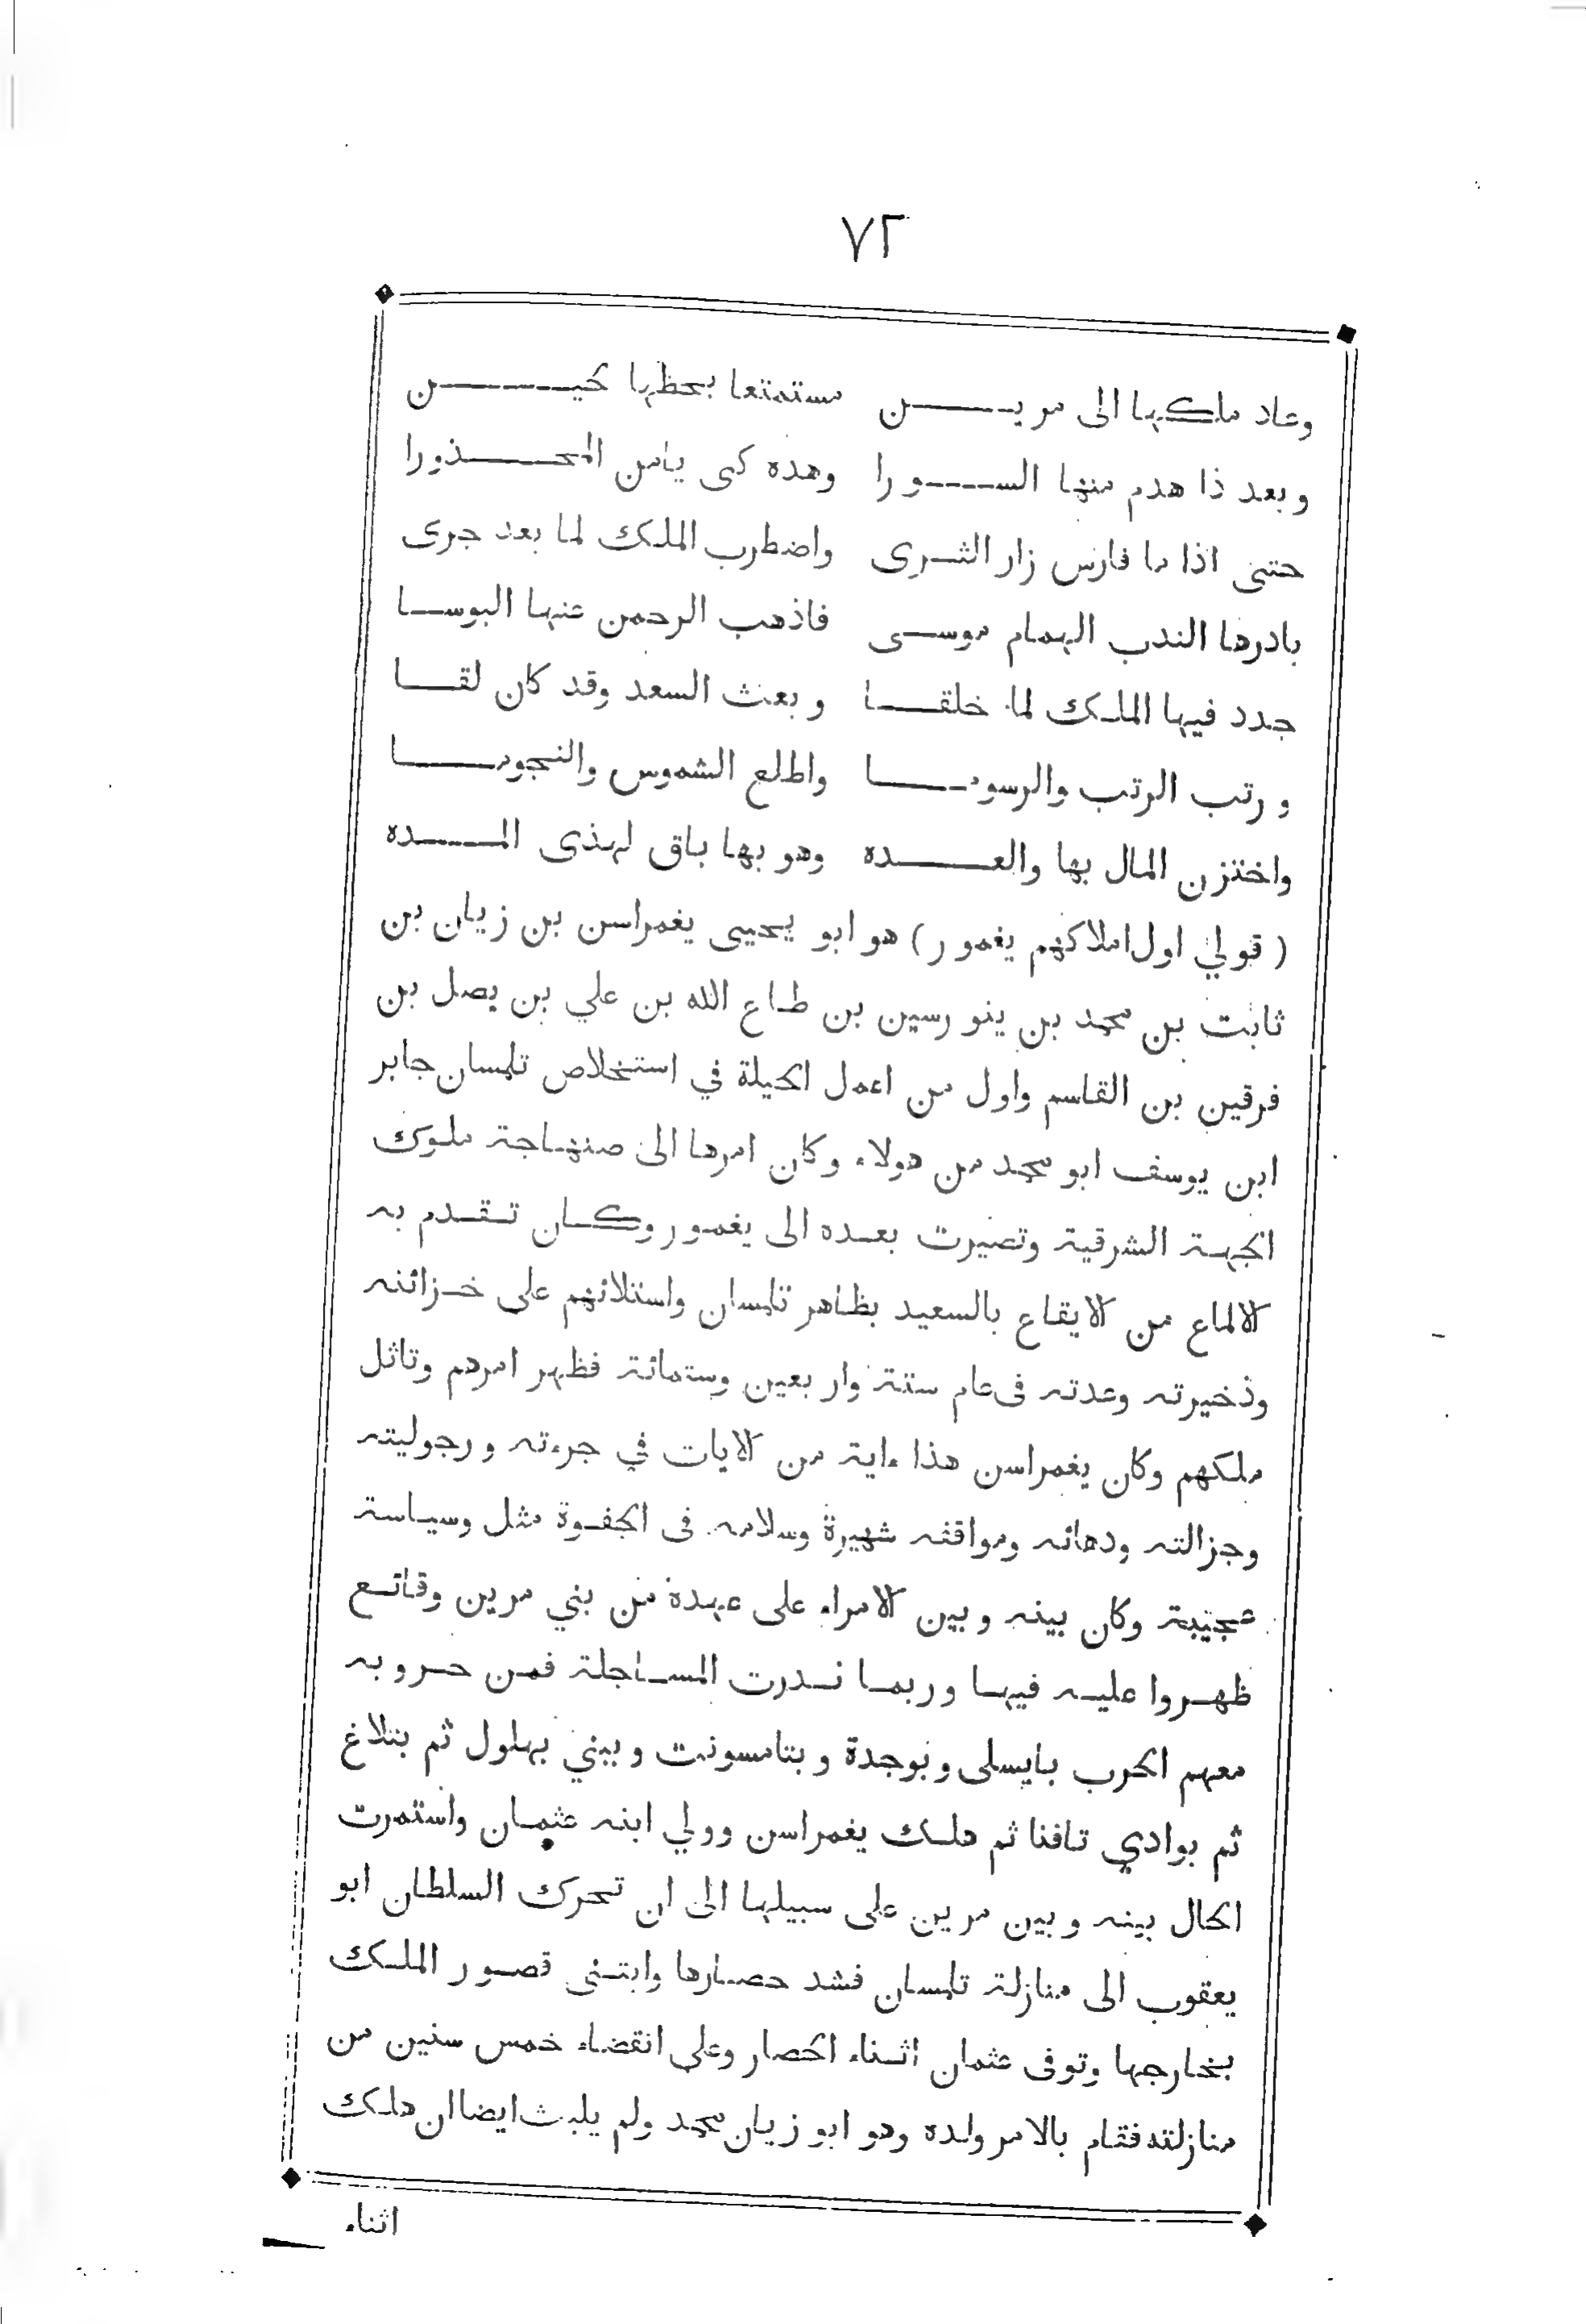 ٧٢
وعاد ملكها الى مرين مستمتعا بحظها كحين
وبعد ذا هدم منها السورا وهده كى يامن المحذورا
حتى اذا ما فارس زار الثرى واضطرب الملك لما بعد جرى
بادرها الندب الهمام موسى فاذهب الرحمن عنها البوسا
جدد فيها الملك لما خلقا وبعث السعد وقد كان لقا
ورتب الرتب والرسوما واطلع الشموس والنجوما
واختزن المال بها والعده وهو بها باق لهذى المده
( قولي اول املاكهم يغمور ) هو ابو يحيى يغمراسن بن زيان بن
ثابت بن محمد بن ينورسين بن طاع الله بن علي بن يصل بن
فرقين بن القاسم واول من اعمل الحيلة في استخلاص تلمسان جابر
ابن يوسف ابو محمد من هولاء وكان امرها الى صنهاجة ملوك
الجهة الشرقية وتصيرت بعده الى يغمور وكان تقدم به
الالماع من الايقاع بالسعيد بظاهر تلمسان واستلائهم على خزائنه
وذخيرته وعدته فى عام ستة واربعين وستمائة فظهر امرهم وتاثل
ملكهم وكان يغمراسن هذا ءاية من الايات في جرءته ورجوليته
وجزالته ودهائه ومواقفه شهيرة وسلامه فى الجفوة مثل وسياسة
عجيبة وكان بينه وبين الامراء على عهدة من بني مرين وقائع
ظهروا عليه فيها وربما ندرت المساجلة فمن حروبه
معهم الحرب بايسلى وبوجدة وبتامسونت وببني بهلول ثم بتلاغ
ثم بوادي تافنا ثم هلك يغمراسن وولي ابنه عثمان واستمرت
الحال بينه وبين مرين على سبيلها الى ان تحرك السلطان ابو
يعقوب الى منازلة تلمسان فشد حصارها وابتنى قصور الملك
بخارجها وتوفى عثمان اثناء الحصار وعلى انقضاء خمس سنين من
منازلته فقام بالامر ولده وهو ابو زيان محمد ولم يلبث ايضا ان هلك
اثناء